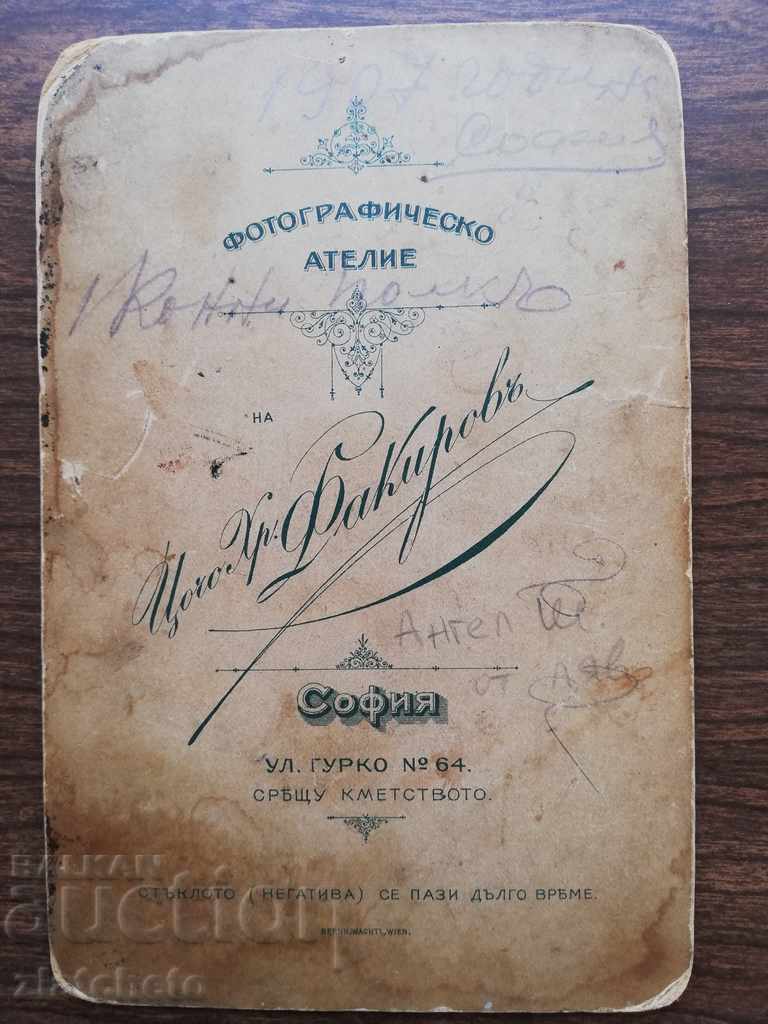 1907 година
София
ФОТОГРАФИЧЕСКО
АТЕЛИЕ
1 Конни полкъ
НА
Цочо Хр. Факировъ
Ангел Ш.
от
София
УЛ. ГУРКО № 64.
СРѢЩУ КМЕТСТВОТО.
СТЪКЛОТО (НЕГАТИВА) СЕ ПАЗИ ДЪЛГО ВРѢМЕ.
BERNH.WACHTL,WIEN.
BALKAN
auction
zlatcheto